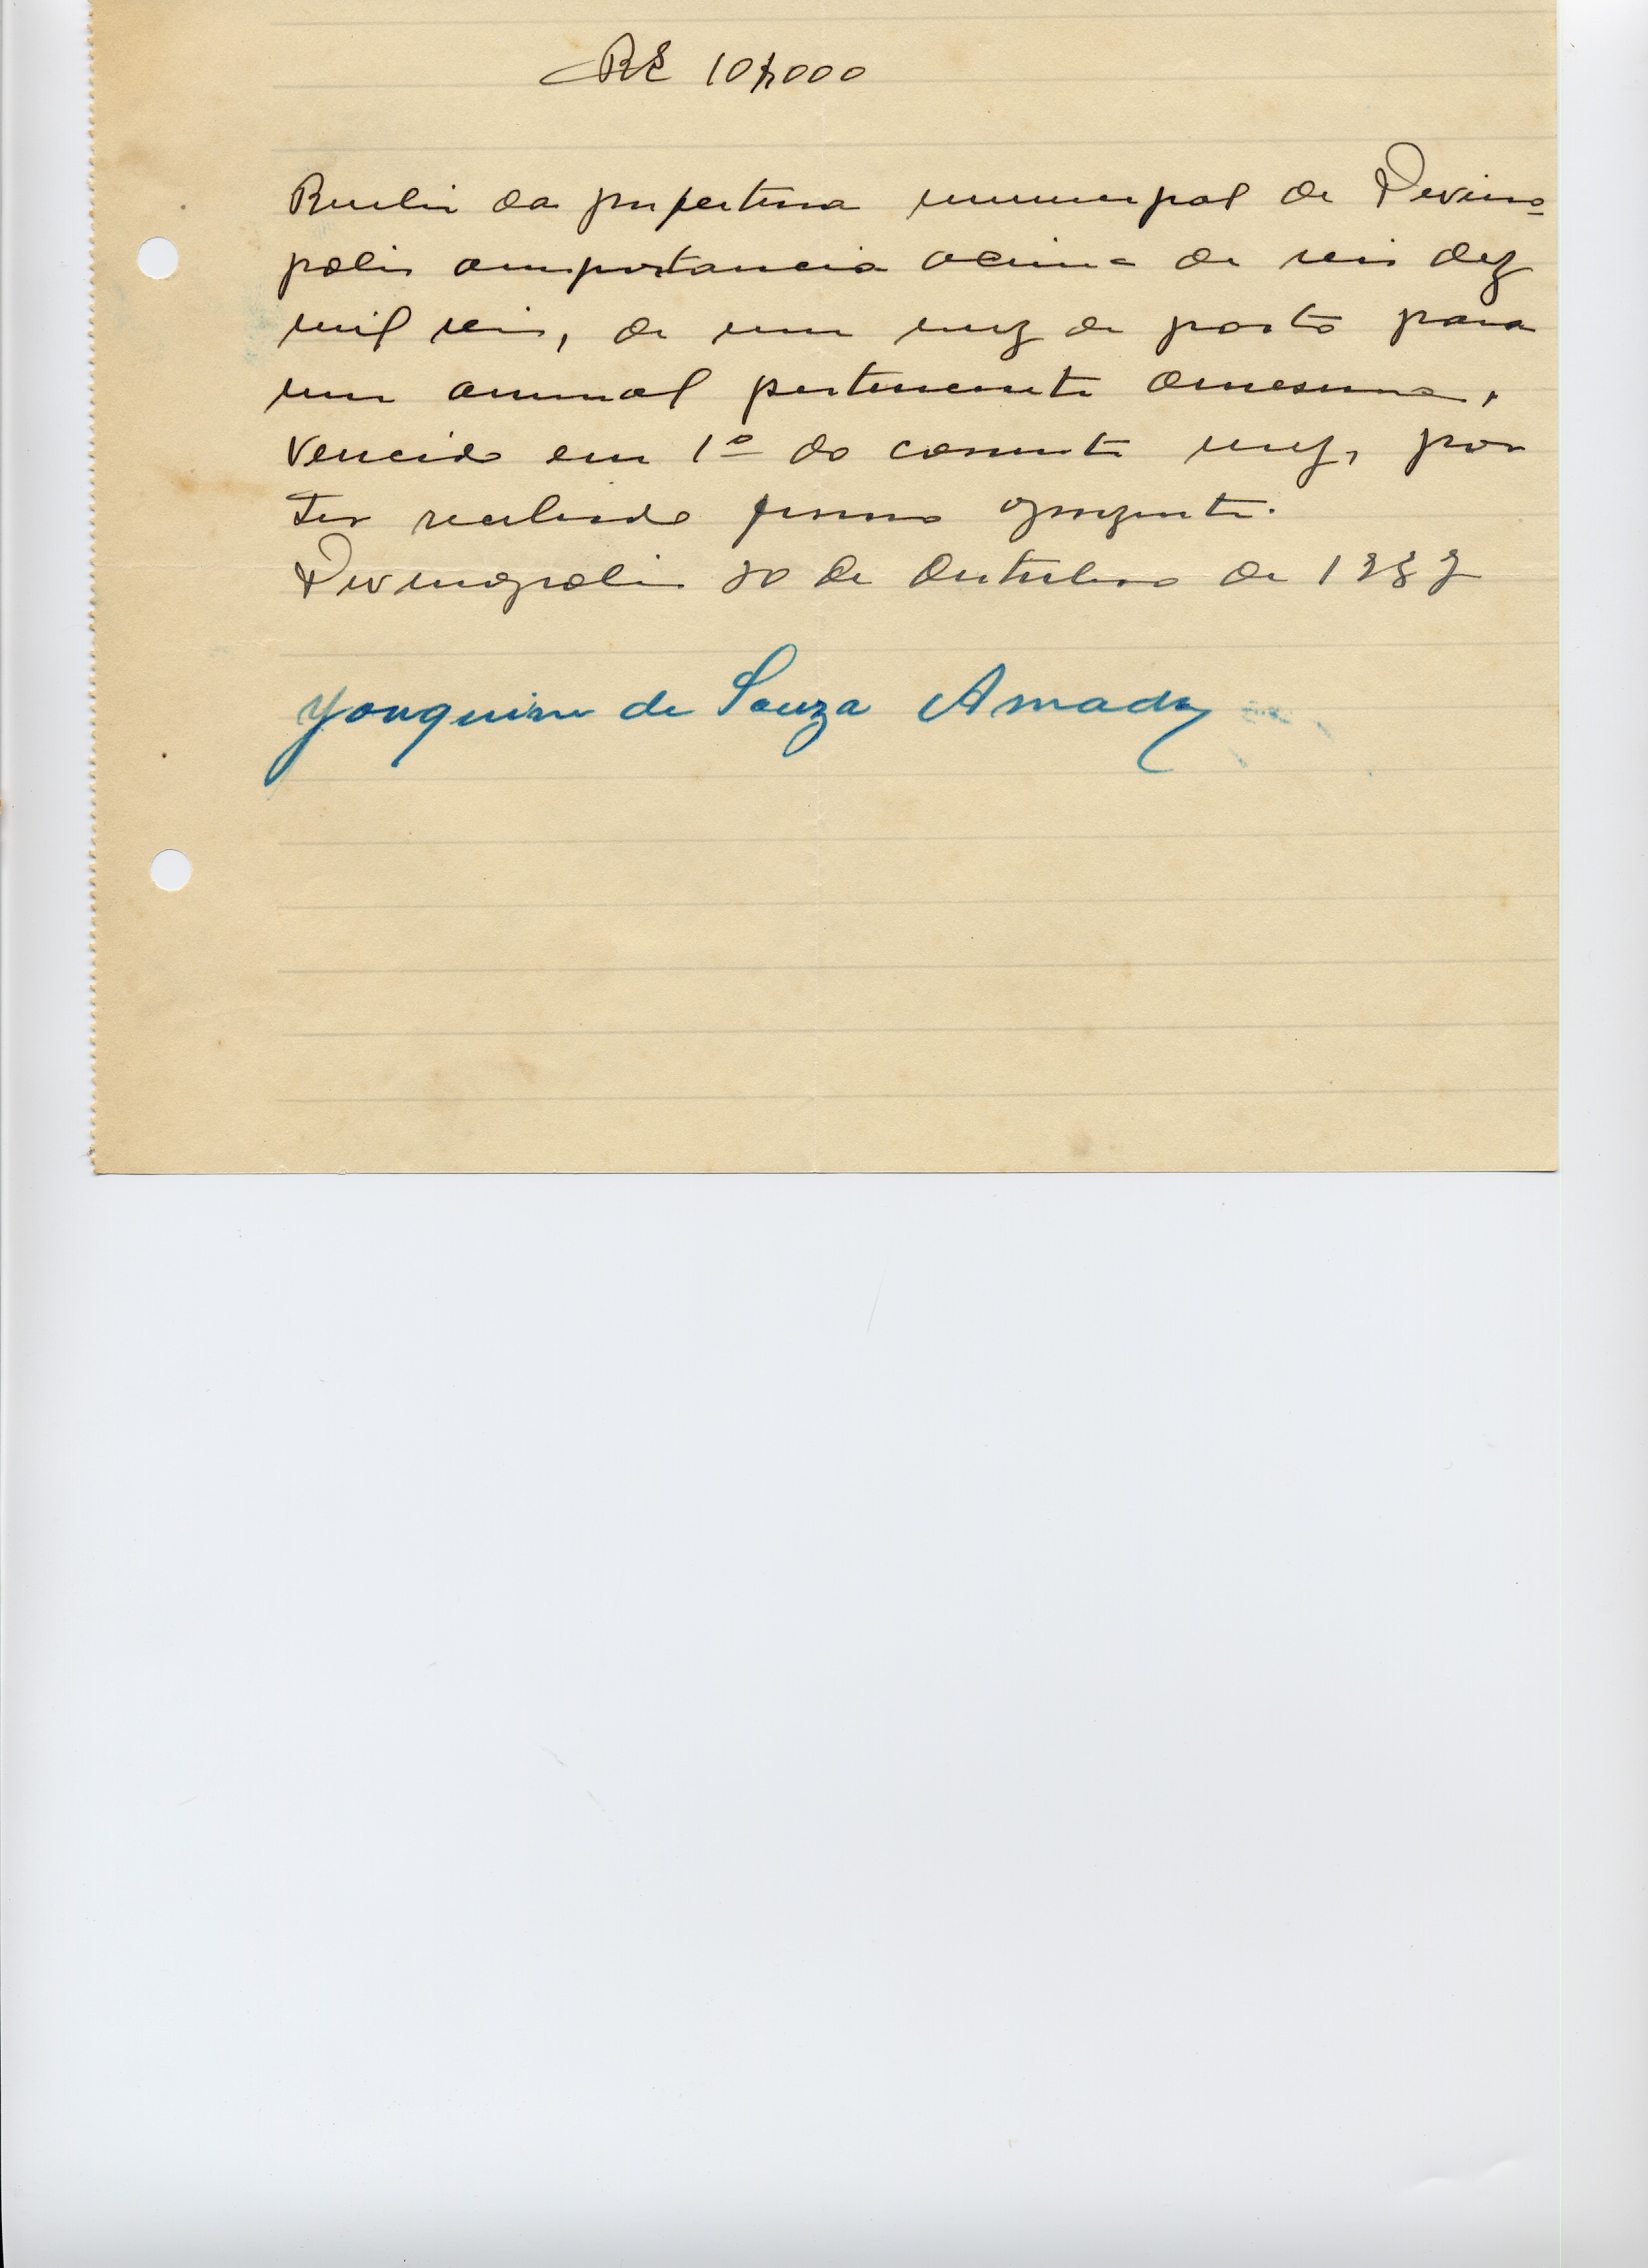 RS 10$000
Recebi da prefeitura municipal de Divino-
polis aimportancia acima de reis dez
mil reis, de um mez de pasto para
um animal pertencente amesma,
vencido em 1º do corrente mez, por
ter recebido firmo opresente.
Divinopolis 30 de Outubro de 1937
Yoaquim de Souza Amado